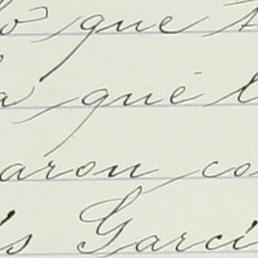 que
que
aron co
s Garci